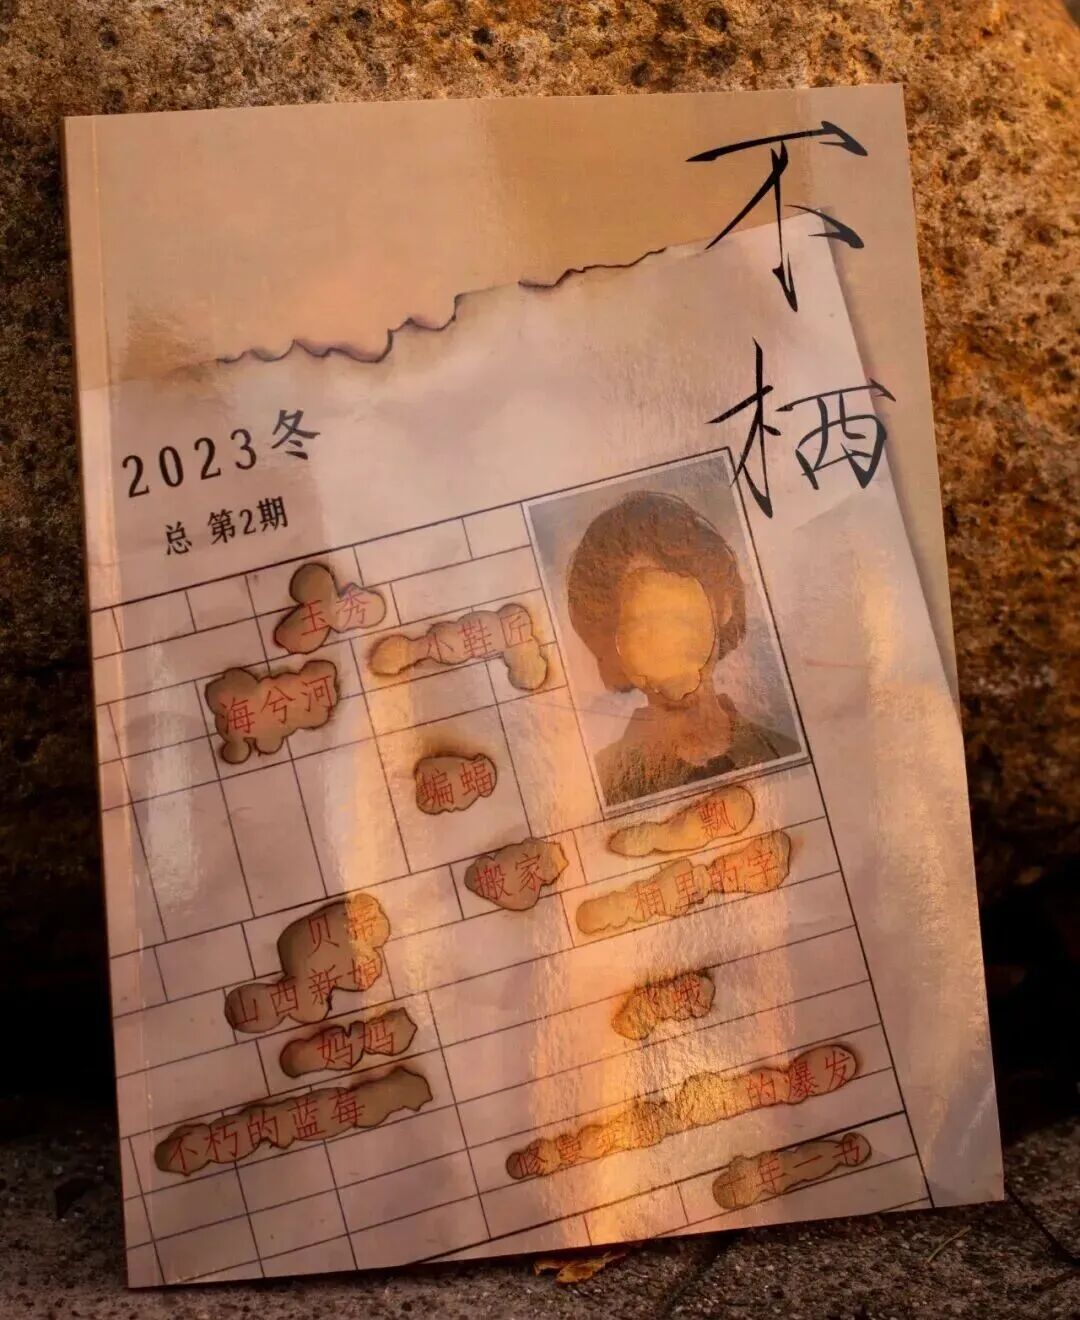 不栖
2023冬
总 第2期
玉秀
小鞋匠
海兮河
蝙蝠
飘
搬家
桶里的字
贝蒂
山西新娘
飞蛾
妈妈
不朽的蓝莓
的爆发
十年一书